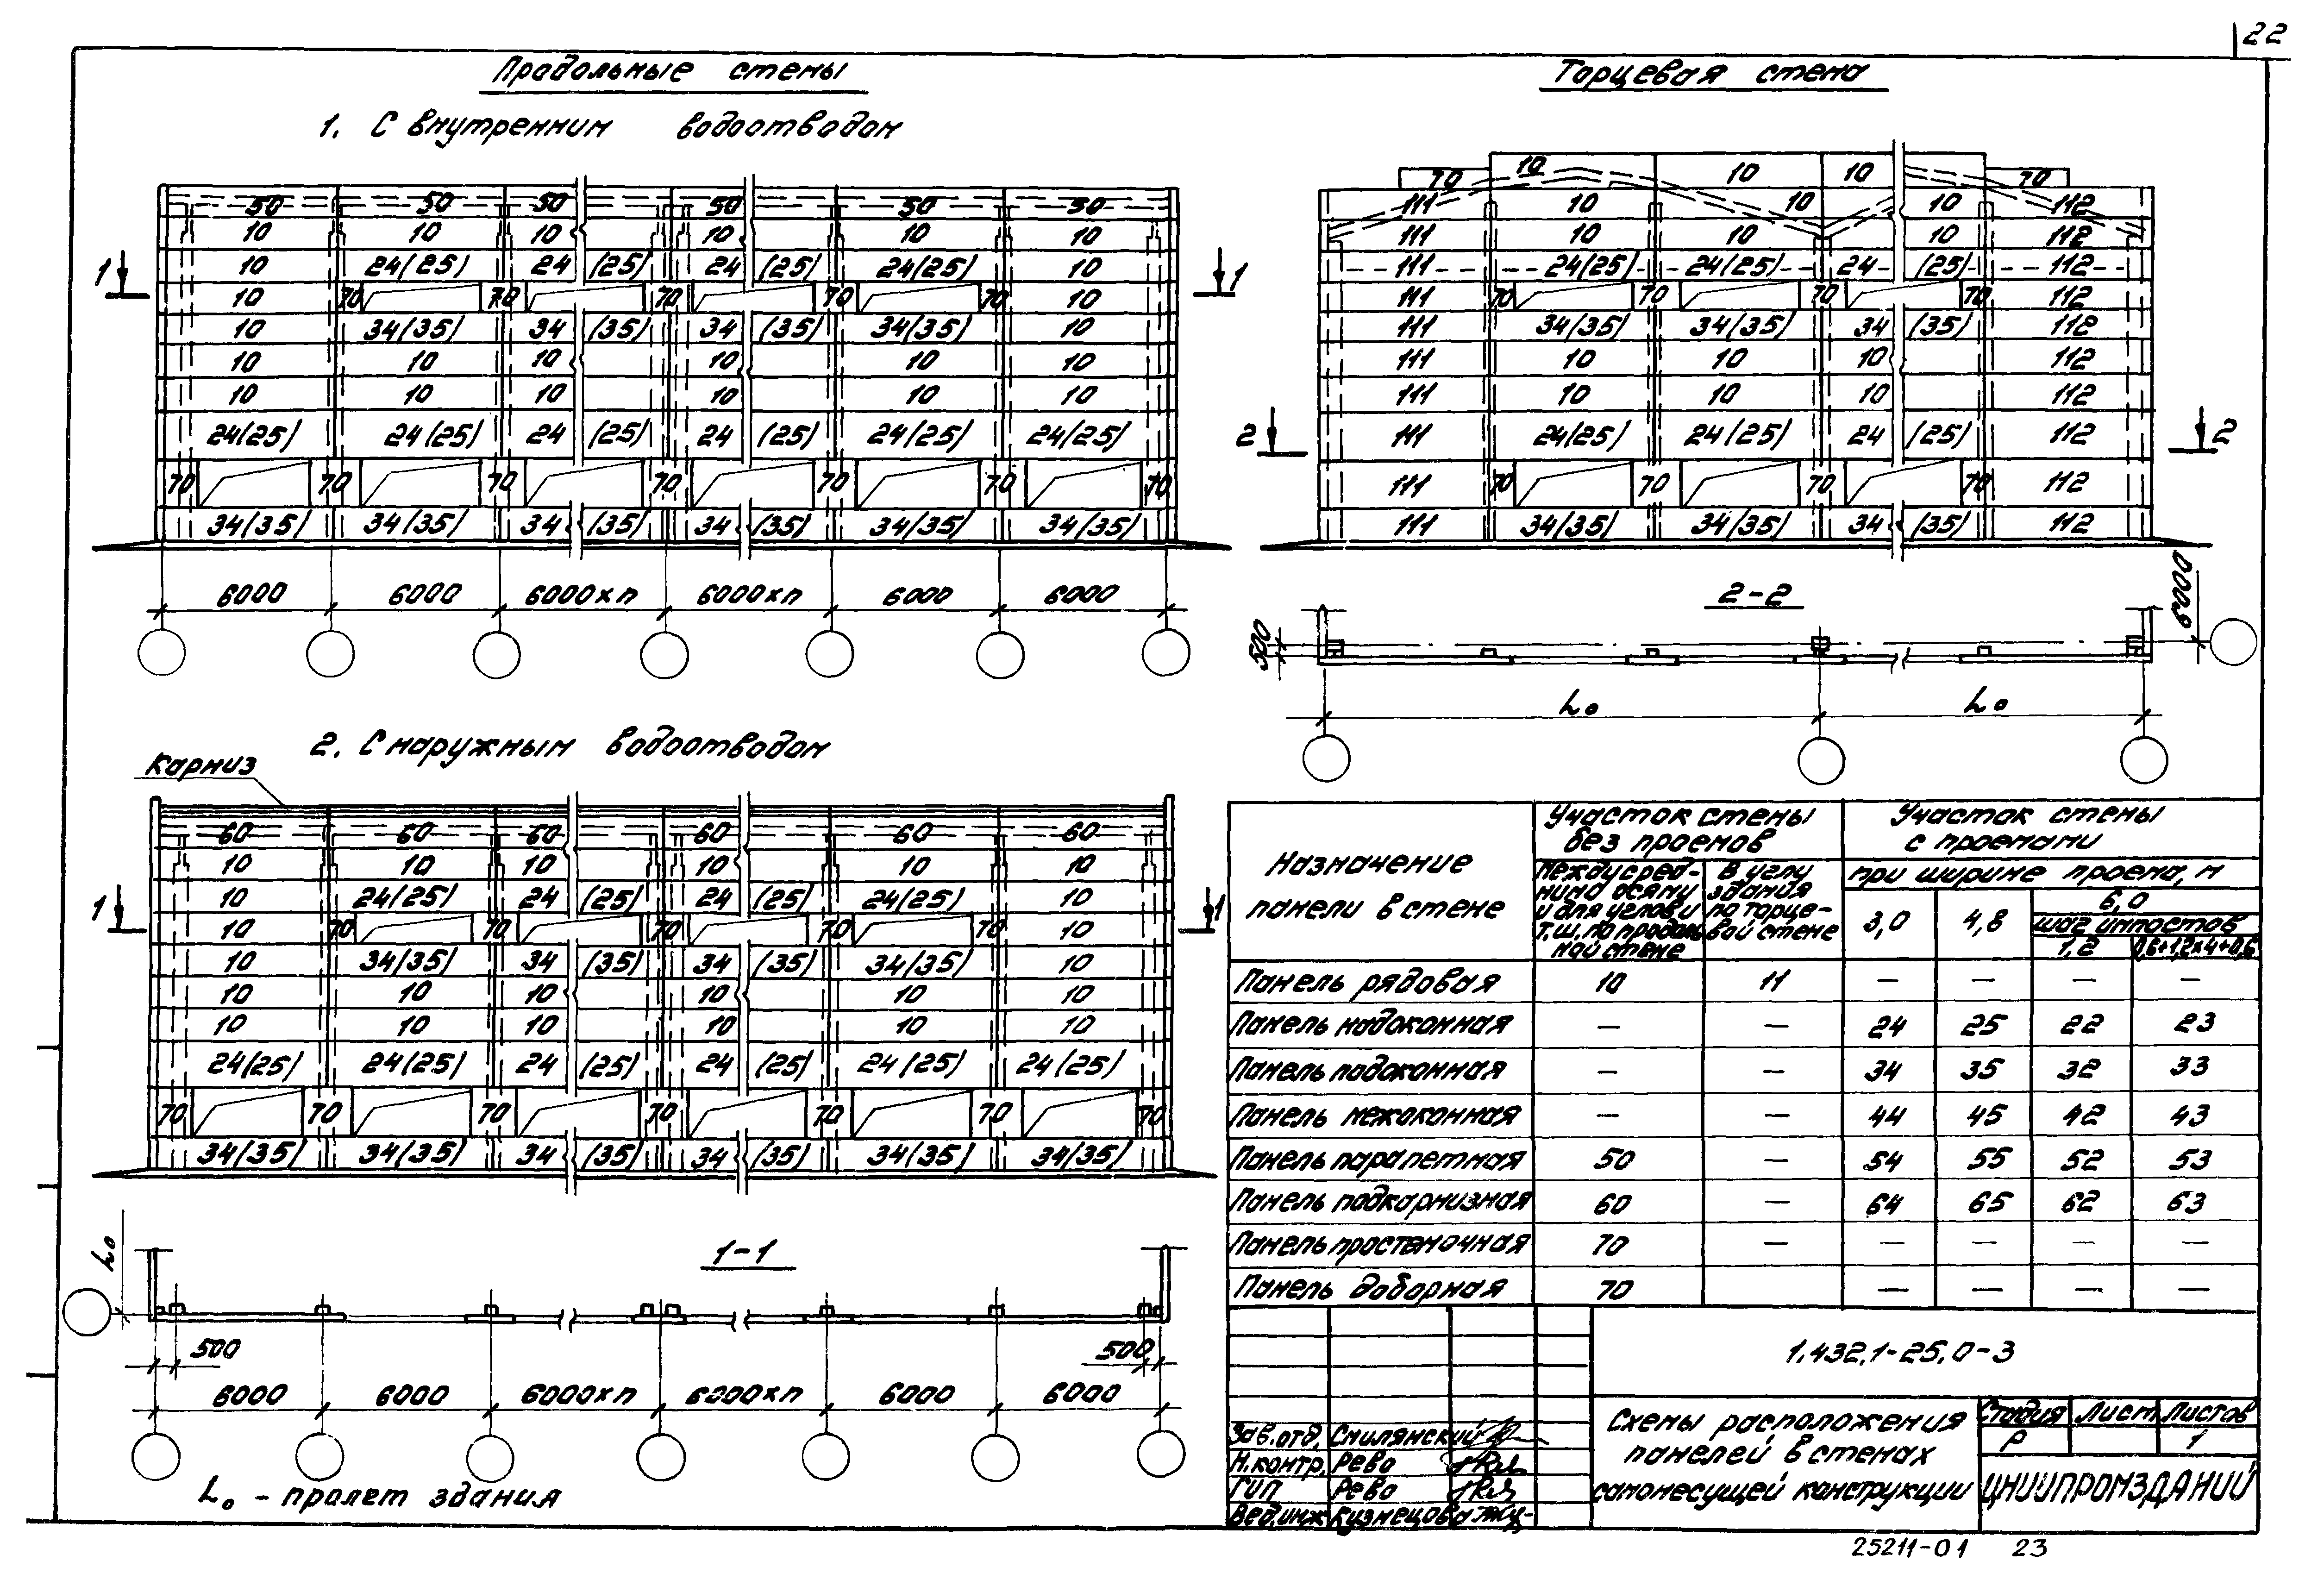 22
Продольные стены
1. С внутренним водоотводом
50 50 50 50 50 50
10 10 10 10 10 10
10 24(25) 24 (25) 24 (25) 24(25) 10
1 1
10 70 70 70 70 70 10
10 34(35) 34 (35) 34 (35) 34(35) 10
10 10 10 10 10 10
10 10 10 10 10 10
24(25) 24(25) 24 (25) 24 (25) 24(25) 24(25)
70 70 70 70 70 70 70
34(35) 34(35) 34 (35) 34 (35) 34(35) 34(35)
6000 6000 6000хп 6000хп 6000 6000
Торцевая стена
70 10 10 10 70
111 10 10 10 112
111 10 10 10 112
111 24(25) 24(25) 24 (25) 112
111 70 70 70 70 112
111 34(35) 34(35) 34 (35) 112
111 10 10 10 112
111 10 10 10 112
2 111 24(25) 24(25) 24 (25) 112 2
111 70 70 70 70 112
111 34(35) 34(35) 34 (35) 112
2-2
500
6000
L₀ L₀
2. С наружным водоотводом
Карниз
60 60 60 60 60 60
10 10 10 10 10 10
10 24(25) 24 (25) 24 (25) 24(25) 10
1 1
10 70 70 70 70 70 10
10 34(35) 34 (35) 34 (35) 34(35) 10
10 10 10 10 10 10
10 10 10 10 10 10
24(25) 24(25) 24 (25) 24 (25) 24(25) 24(25)
70 70 70 70 70 70 70
34(35) 34(35) 34 (35) 34 (35) 34(35) 34(35)
1-1
L₀
500 500
6000 6000 6000хп 6000хп 6000 6000
L₀ - пролет здания
Назначение
панели в стене
Участок стены
без проемов
Междусред-
ними осями
и для углов и
т.ш. по продоль
ной стене
В углу
здания
по торце-
вой стене
Участок стены
с проемами
при ширине проема, м
3,0 4,8 6,0
шаг импостов
1,2 0,6+1,2×4+0,6
Панель рядовая 10 11 — — — —
Панель надоконная — — 24 25 22 23
Панель подоконная — — 34 35 32 33
Панель межоконная — — 44 45 42 43
Панель парапетная 50 — 54 55 52 53
Панель подкарнизная 60 — 64 65 62 63
Панель простеночная 70 — — — — —
Панель доборная 70 — — — —
1.432.1-25.0-3
Зав.отд. Смилянский
Н.контр. Рево
ГИП Рево
Вед.инж Кузнецова
Схемы расположения
панелей в стенах
самонесущей конструкции
Стадия Лист Листов
Р 1
ЦНИИПРОМЗДАНИЙ
25211-01 23